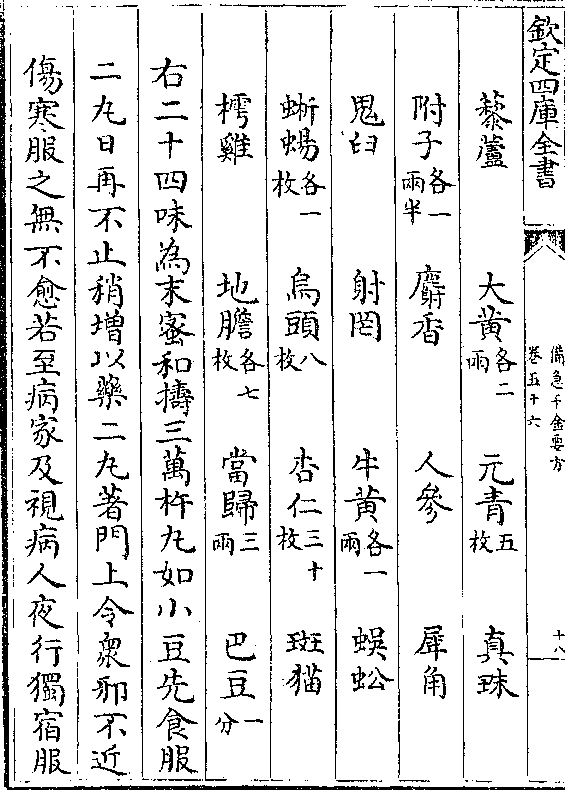 欽定四庫全書
備急千金要方
卷五十六
十八
藜蘆 大黄各二兩 元青五枚 真珠
附子各一兩半 麝香 人參 犀角
鬼臼 射罔 牛黄各一兩 蜈蚣
蜥蜴各一枚 烏頭八枚 杏仁三十枚 斑猫
樗雞 地膽各七枚 當歸三兩 巴豆一分
右二十四味為末蜜和擣三萬杵丸如小豆先食服
二丸日再不止稍増以藥二丸著門上令衆邪不近
傷寒服之無不愈若至病家及視病人夜行獨宿服